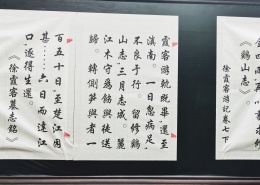 《鷄山志》。
《徐霞客游記卷七下
霞客游軌既畢，還至
滇南。一日忽病足，
不良于行。留修鷄
山志，三月志成。麗
江木守爲飭輿從送
歸。轉側笋輿者一
百五十日，至楚江困
甚……六日而達江
口，遂得生還。
《徐霞客墓志銘》